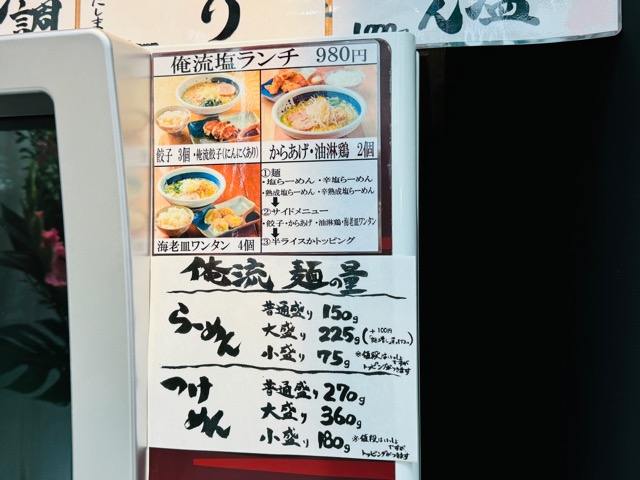 調
にしま
り
ん 塩
俺流塩ランチ 980円
餃子 3個・俺流餃子(にんにくあり)
からあげ・油淋鶏 2個
海老皿ワンタン 4個
①麺
・塩らーめん ・辛塩らーめん
・熟成塩らーめん ・辛熟成塩らーめん
②サイドメニュー
・餃子・からあげ・油淋鶏・海老皿ワンタン
③半ライスかトッピング
俺流 麺の量
らーめん
普通盛り 150g
大盛り 225g (+100円
小盛り 75g ※値段はいっしょ
ですが
トッピングがつきます
つけ
めん
普通盛り 270g
大盛り 360g
小盛り 180g ※値段はいっしょ
ですが
トッピングがつきます